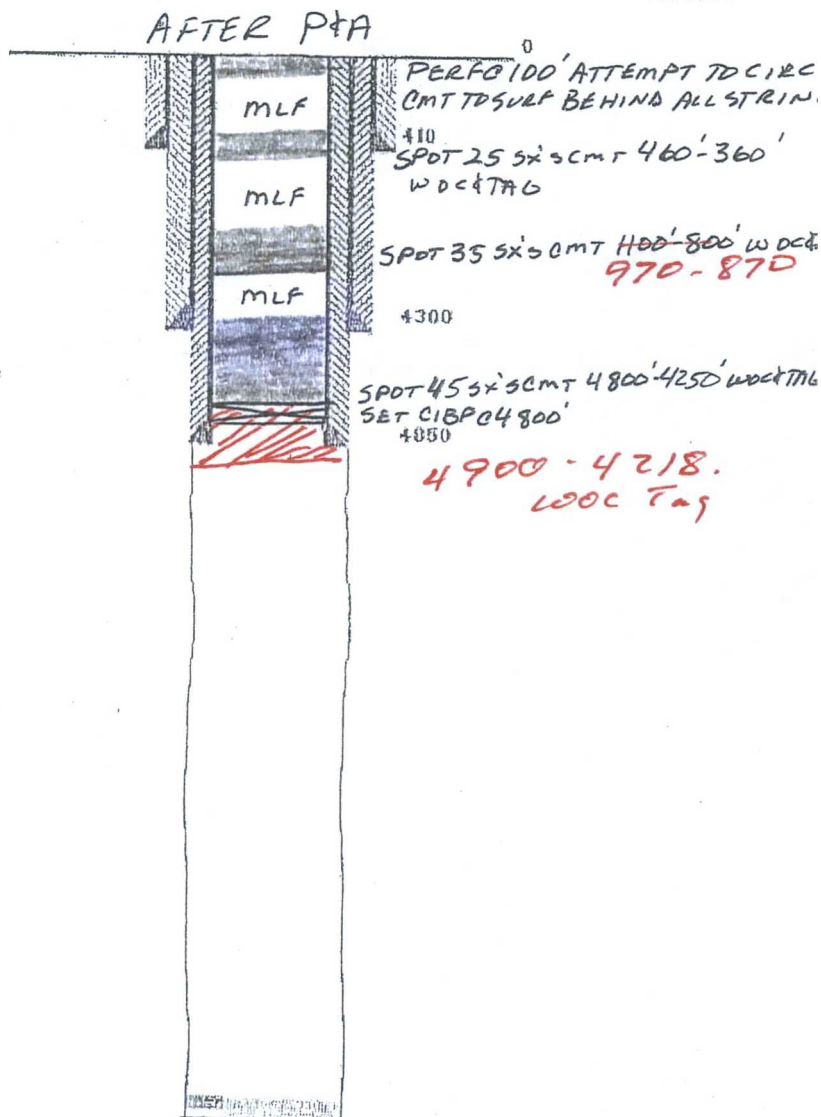 AFTER P&A
0
PERF@100' ATTEMPT TO CIRC
CMT TO SURF BEHIND ALL STRIN
MLF
410
SPOT 25 SX'S CMT 460'-360'
WOC & TAG
MLF
SPOT 35 SX'S CMT 1100'-800' WOC &
970-870
MLF
4300
SPOT 45 SX'S CMT 4800'-4250' WOC & TAG
SET CIBP@4800'
4850
4900-4218.
WOC Tag